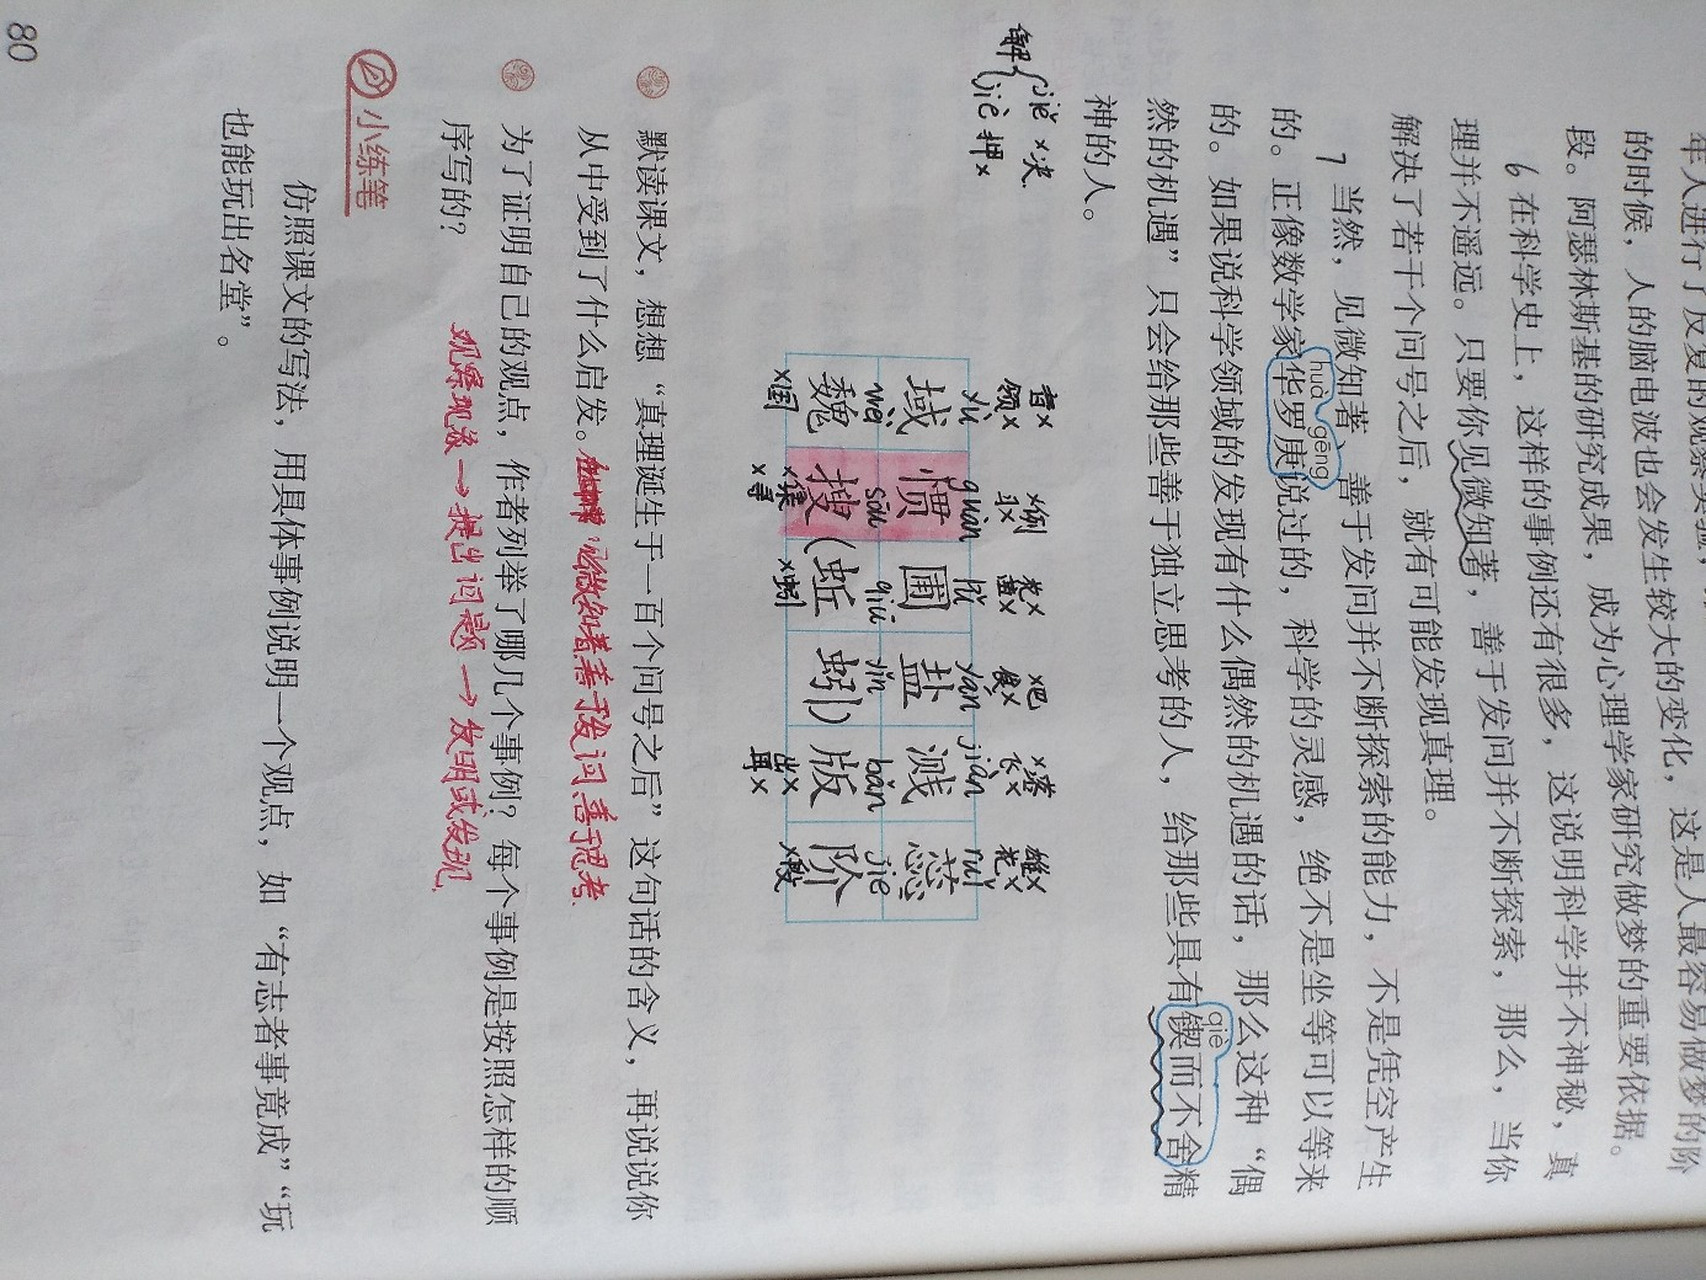 年人进行了反复的观察实验，
这是人最容易做梦的阶
的时候，人的脑电波也会发生较大的变化，
段。阿瑟林斯基的研究成果，成为心理学家研究做梦的重要依据。
6 在科学史上，这样的事例还有很多，这说明科学并不神秘，真
理并不遥远。只要你见微知著，善于发问并不断探索，那么，当你
解决了若干个问号之后，就有可能发现真理。
7 当然，见微知著、善于发问并不断探索的能力，不是凭空产生
huà gēng
的。正像数学家华罗庚说过的，科学的灵感，绝不是坐等可以等来
的。如果说科学领域的发现有什么偶然的机遇的话，那么这种“偶
qiè
然的机遇”只会给那些善于独立思考的人，给那些具有锲而不舍精
神的人。
解{jiě ×决
jiè 押×
领× ×例 花× 吧× ×落 雄×
习× 花×
yù guàn pǔ yán jiàn ruǐ
域 惯 圃 盐 溅 蕊
wèi sōu qiū yǐn bǎn jiē
魏 搜 (蚯 蚓) 版 阶
×国 ×集 ×蚓 出× ×段
×寻
默读课文，想想“真理诞生于一百个问号之后”这句话的含义，再说说你
从中受到了什么启发。见微知著善于发问善于思考
为了证明自己的观点，作者列举了哪几个事例？每个事例是按照怎样的顺
序写的？
观察现象→提出问题→发明或发现
小练笔
仿照课文的写法，用具体事例说明一个观点，如“有志者事竟成”“玩
也能玩出名堂”。
80